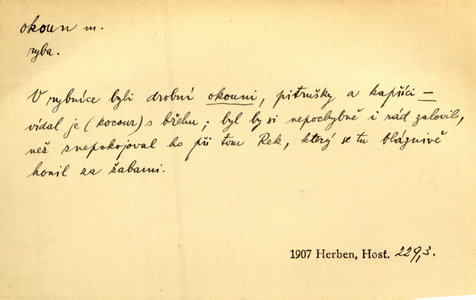 okoun m.
ryba.
V rybníce byli drobní okouni, pitrušky a kapříci —
vídal je (kocour) s břehu; byl by si nepochybně i rád zalovil,
než znepokojoval ho při tom Rek, který se tu bláznivě
honil za žabami.
1907 Herben, Host. 229,3.